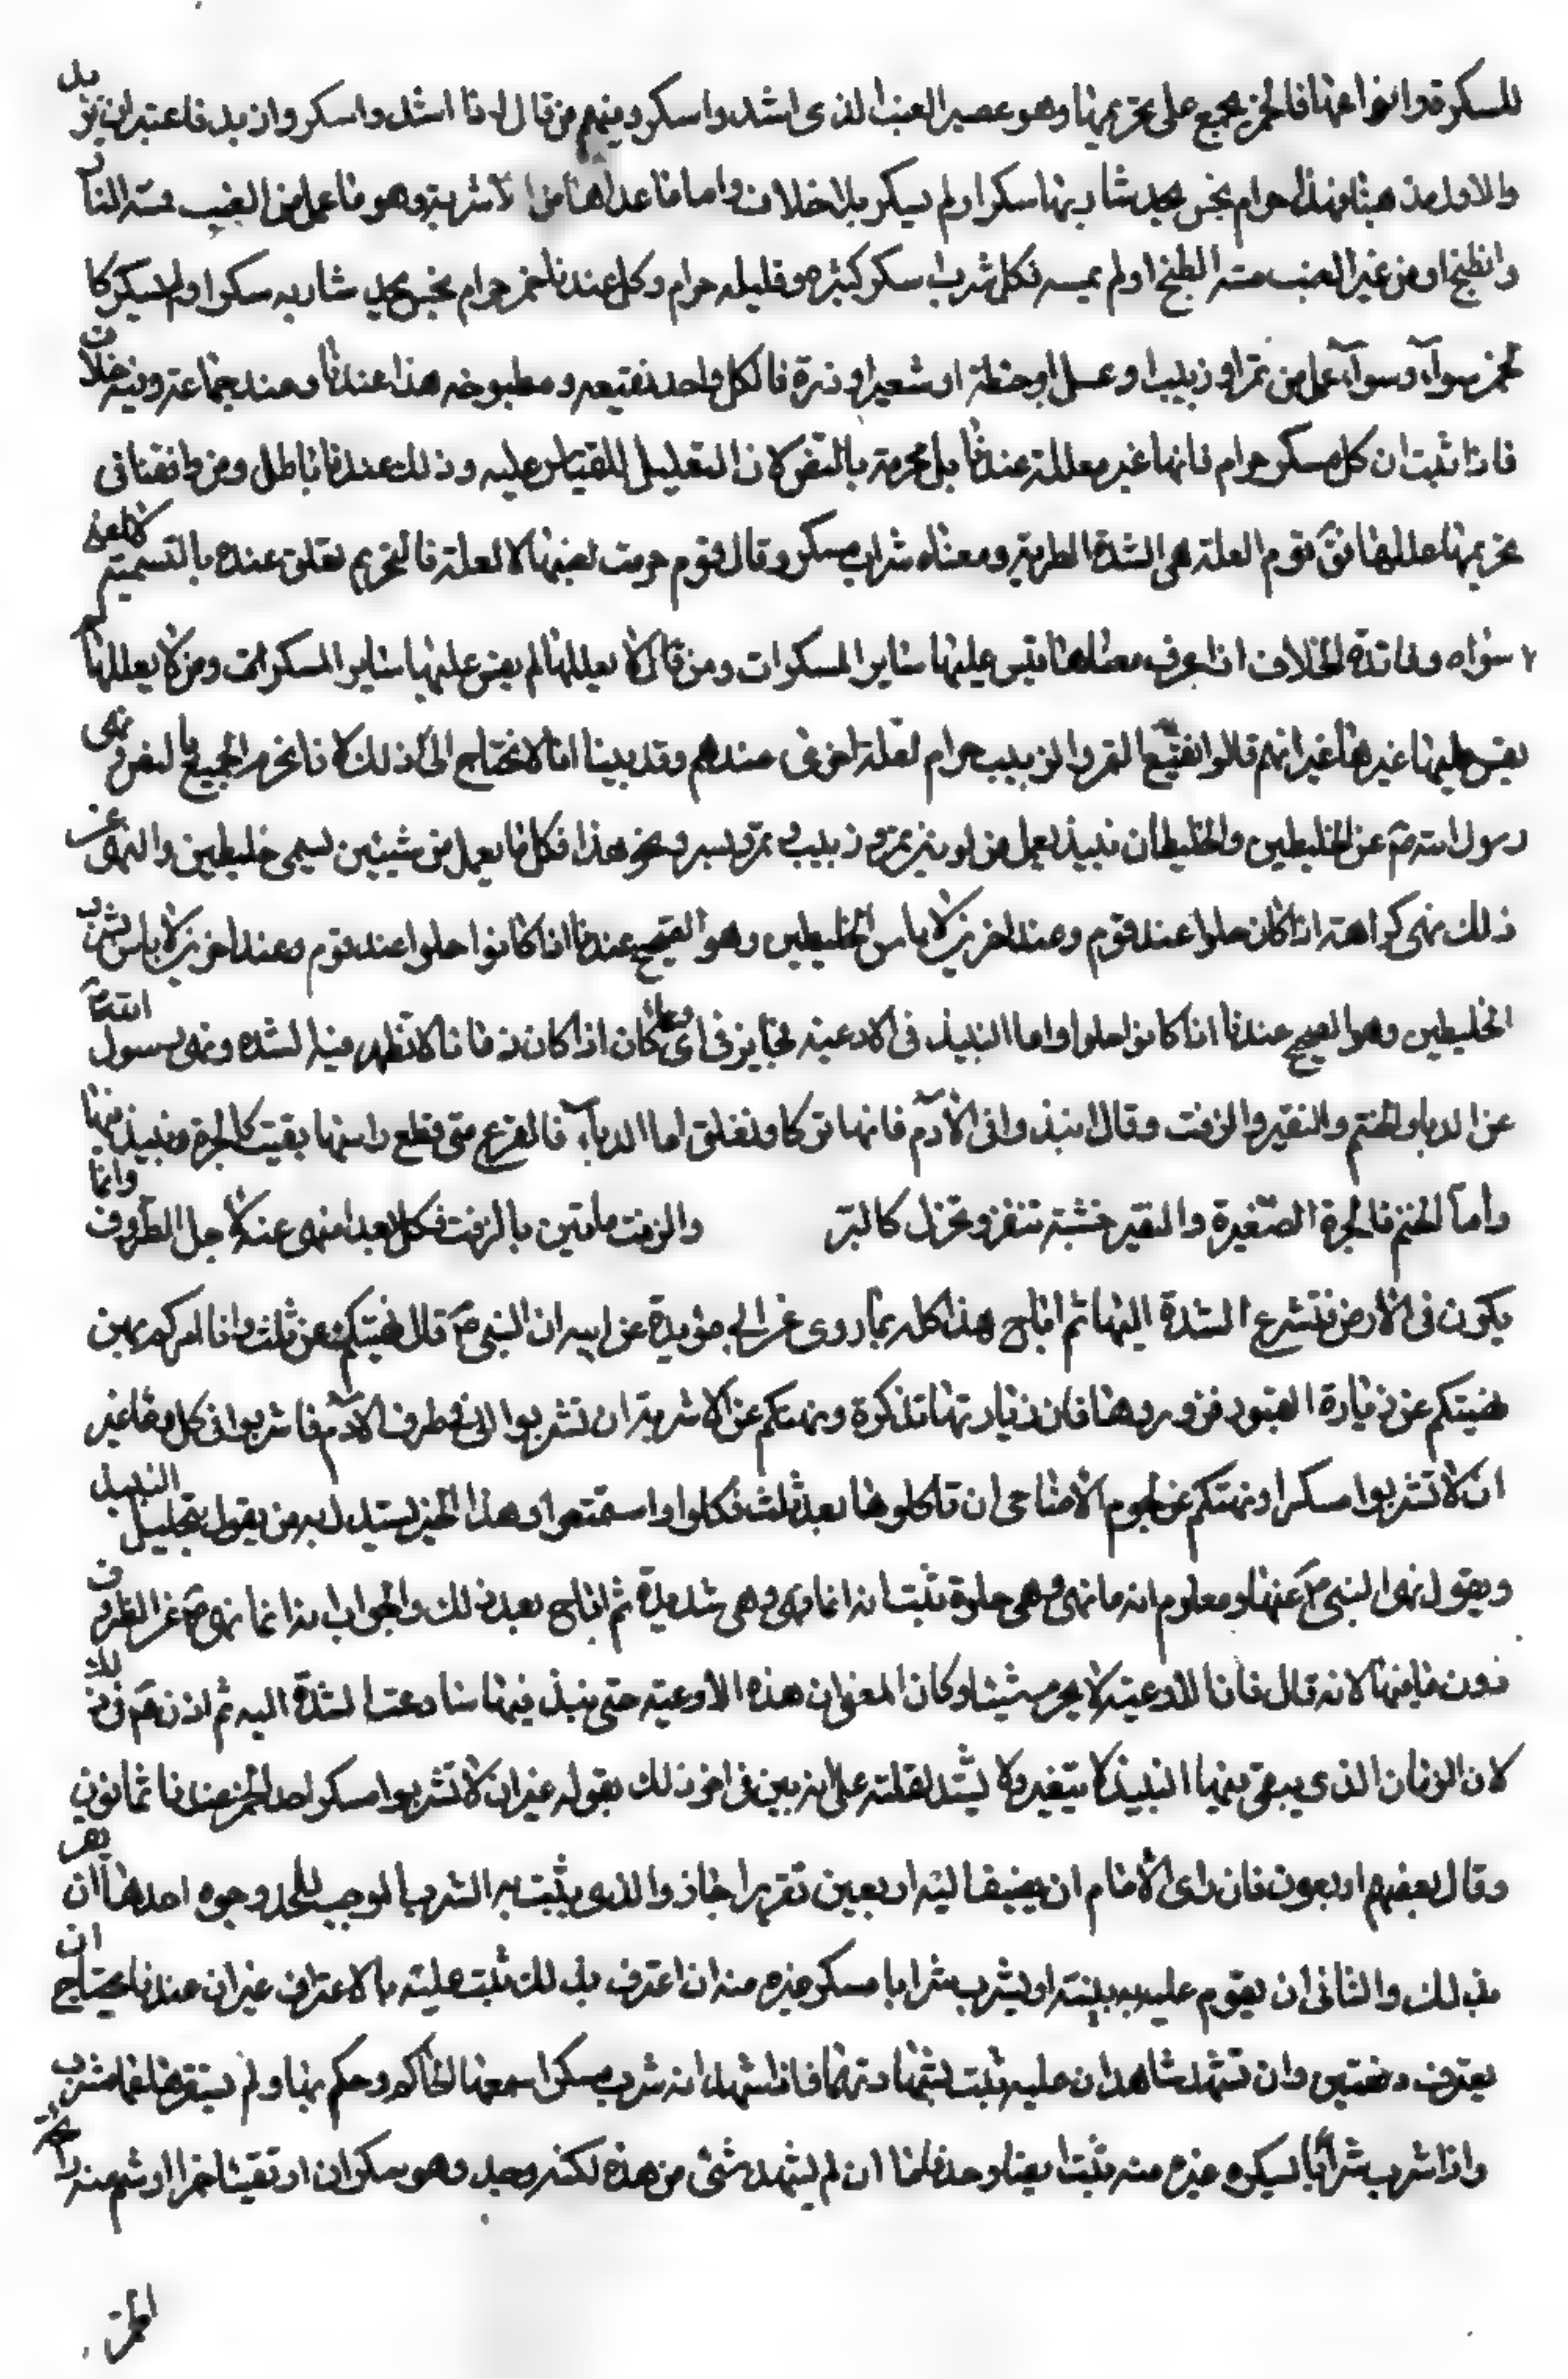 للسكر قد وانواعها فالخمر مجمع على تحريمها وهو عصير العنب الذى اشتد واسكر ومنهم من قال اذا اشتد واسكر وازبد فاعتبر ان يزبد
والاول مذهبنا فهذا حرام نجس يحد شاربها سكر او لم يسكر بلا خلاف واما ما عداها من الاشربة وهو ما عمل من العنب مسته النار
وانطبخ او من غير العنب مسته الطبخ او لم يمسه فكل شراب اسكر كثيره وقليله حرام وكل عندنا خمر حرام نجس يحد شاربه سكر او لم يسكر كا
لخمر سواء وسواء عمل من تمر او زبيب او عسل او حنطة او شعير او ذرة فالكل واحد نقيعه ومطبوخه هذا عندنا وعند جماعة وفيه خلاف
فاذا ثبت ان كل مسكر حرام فانها غير معللة عندنا بل محرمة بالنص لان التعليل للقياس عليه وذلك عندنا باطل ومن وافقنا فى
تحريمها عللها فق قوم العلة هى الشدة المطربة ومعناه شراب مسكر وقال قوم حرمت لعينها لا لعلة فالتحريم تعلق عنده بالتسمية لا لمعنى
سواه وفائدة الخلاف اذا عرف معناها يقيس عليها ساير المسكرات ومن قال لا يعللها لم يقس عليها ساير المسكرات ومن لا يعللها لم
يقس عليها غيرها غير انهم قالوا نقيع التمر والزبيب حرام لعلة اخرى عندهم وقد بينا انا لا نحتاج الى ذلك لانا نحرم الجميع بالنص ونهى
رسول الله ص عن الخليطين والخليطان نبيذ يعمل من لونين تمر وزبيب وتمر وبسر ونحو هذا فكل ما يعمل من شيئين يسمى خليطين والنهى عن
ذلك نهى كراهة اذا كان حلوا عند قوم وعند اخرين لا باس الخليطين وهو الصحيح عندنا اذا كانوا حلوا عند قوم وعند اخرين لا باس بشرب
الخليطين وهو الصحيح عندنا اذا كانوا حلوا واما النبيذ فى الاوعية فجايز فى اى وعاء كان اذا كان زمانا لا تظهر فيه الشدة ونهى رسول الله ص
عن الدبا والحنتم والنقير والمزفت وقال انبذوا فى الادم فانها توكا وتغلق اما الدباء فالقرع متى قطع راسها بقيت كالجرة فينبذ فيها
واما الحنتم فالجرة الصغيرة والنقير خشبة تنقر وتخزل كالبر والزفت ما قير بالزفت فكل هذا منهى عنه لاجل الظروف وانها
يكون فى الارض فتسرع الشدة اليها ثم اباح هذا كله بما روى عن ابى بريدة عن ابيه ان النبى ص قال نهيتكم عن ثلث وانا امركم بهن
نهيتكم عن زيارة القبور فزوروها فان زيارتها تذكرة ونهيتكم عن الاشربة ان تشربوا الا فى ظرف الادم فاشربوا فى كل وعا غير
ان لا تشربوا مسكرا ونهيتكم عن لحوم الاضاحى ان تاكلوها بعد ثلث فكلوا واستمتعوا وهذا الخبر يستدل به من يقول بتحليل النبيذ
ويقول نهى النبى ص عنها ومعلوم انه ما نهى وهى حلوة ثبت انه انما نهى وهى شديدة ثم اباح بعد ذلك والجواب انه انما نهى ص عن الظروف
دون ما فيها لانه قال فان الاوعية لا يحرم شيئا وكان المعنى ان هذه الاوعية حتى ينبذ فيها سارعت الشدة اليه ثم اذن ص فى ذلك
لان الزمان الذى يبقى فيها النبيذ لا يتغير ولا يشتد لقلته على انه بين فى اخر ذلك بقوله غير ان لا تشربوا مسكرا حد الخمر عندنا ثمانون
وقال بعضهم اربعون فان راى الامام ان يضيف اليه اربعين تقريرا جاز والذى يثبت به الشرب الموجب للحد وجوه احدها ان يقر
بذلك والثانى ان يقوم عليه به بينة او يشرب شرابا مسكر غيره منه ان اعترف بذلك ثبت عليه بالاعتراف غير ان عندنا يحتاج ان
يعترف دفعتين وان تشهد شاهدان عليه ثبت بشهادتهما فاذا شهدا انه شرب مسكرا سمعها الحاكم وحكم بها ولم يستفهما عما شرب
واذا شرب شرابا ليسكره غيره منه ثبت ايضا وحد فاما ان لم يشهد بشئ من هذه لكنه وجد وهو سكران او تقيئا خمرا او شم منه رايحة
الخمر